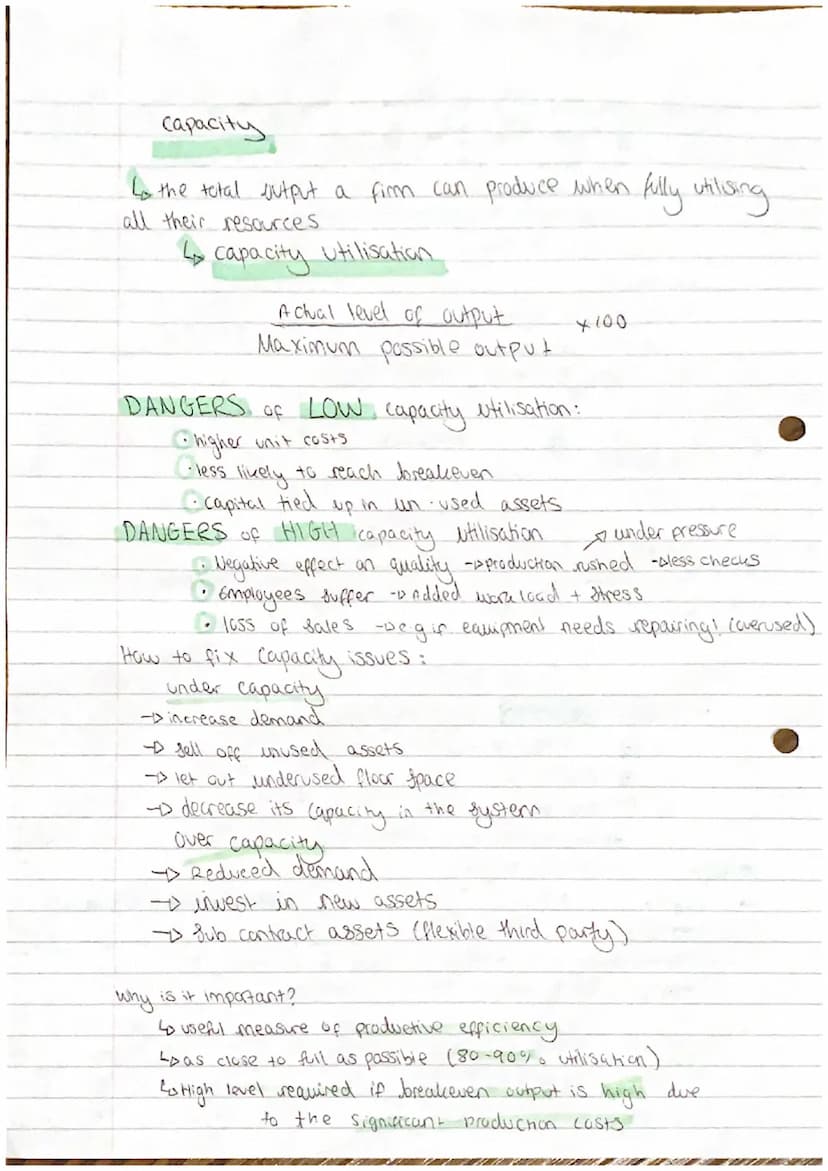 Capacity
↳ the total output a firm can produce when fully utilising
all their resources
↳ capacity utilisation
Actual level of output x100
Maximum possible output
DANGERS of LOW capacity utilisation:
· higher unit costs
· less likely to reach breakeven
· capital tied up in un-used assets
DANGERS of HIGH capacity utilisation ↗ under pressure
· Negative effect on quality → production rushed → less checks
· Employees suffer → added workload + stress
· loss of sales → e.g if equipment needs repairing! (overused)
How to fix capacity issues:
under capacity
→ increase demand
→ sell off unused assets
→ let out underused floor space
→ decrease its capacity in the system
Over capacity
→ Reduced demand
→ invest in new assets
→ Sub contract assets (flexible third party)
Why is it important?
↳ useful measure of productive efficiency
↳ as close to full as possible (80-90% utilisation)
↳ High level required if breakeven output is high due
to the significant production costs